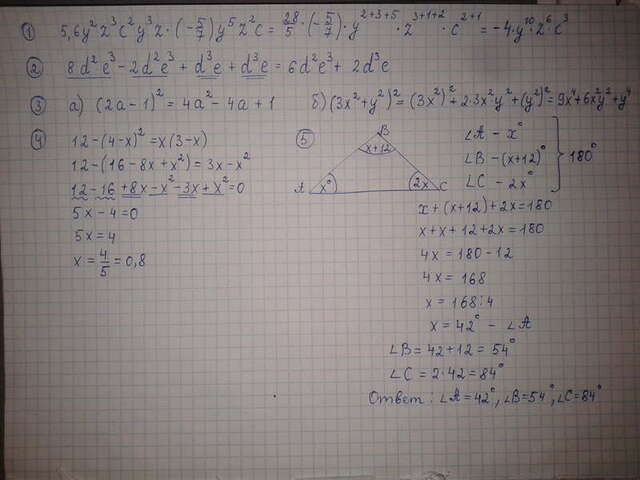 ① 5,6y²z³c²y³z·(-5/7)y⁵z²c = 28/5·(-5/7)·y²⁺³⁺⁵·z³⁺¹⁺²·c²⁺¹ = -4·y¹⁰·z⁶·c³
② 8d²e³ - 2d²e³ + d³e + d³e = 6d²e³ + 2d³e
③ а) (2a-1)² = 4a² - 4a + 1 б) (3x²+y²)² = (3x²)² + 2·3x²y² + (y²)² = 9x⁴+6x²y²+y⁴
④ 12-(4-x)² = x(3-x)
12-(16-8x+x²) = 3x-x²
12-16+8x-x²-3x+x²=0
5x-4=0
5x=4
x = 4/5 = 0,8
⑤
B
x+12
A x° 2x C
∠A - x°
∠B - (x+12)°
∠C - 2x°
180°
x+(x+12)+2x=180
x+x+12+2x=180
4x=180-12
4x=168
x=168:4
x=42° - ∠A
∠B=42+12=54°
∠C=2·42=84°
Ответ: ∠A=42°, ∠B=54°, ∠C=84°